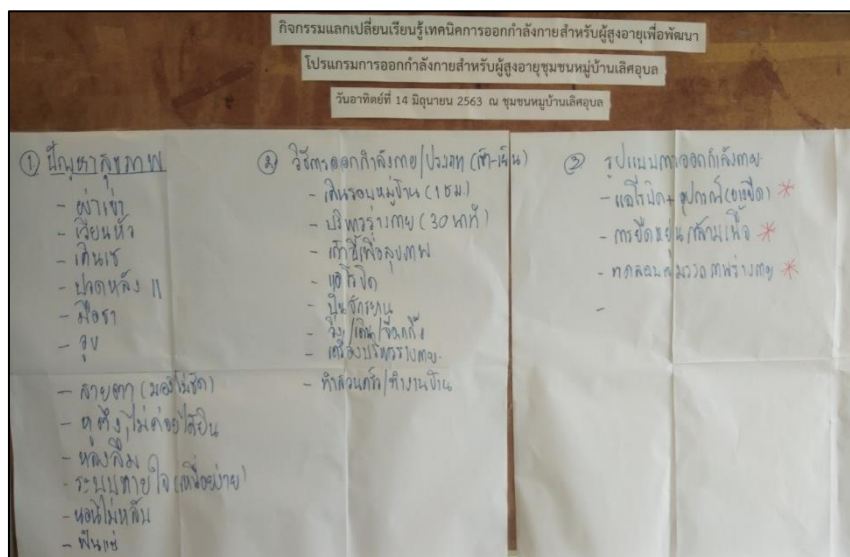 กิจกรรมแลกเปลี่ยนเรียนรู้เทคนิคการออกกำลังกายสำหรับผู้สูงอายุเพื่อพัฒนา
โปรแกรมการออกกำลังกายสำหรับผู้สูงอายุชุมชนหมู่บ้านเลิศอุบล
วันอาทิตย์ที่ 14 มิถุนายน 2563 ณ ชุมชนหมู่บ้านเลิศอุบล
① ปัญหาสุขภาพ
- ผ่าเข่า
- เวียนหัว
- เดินเซ
- ปวดหลัง ||
- มือชา
- วูบ
- สายตา (มองไม่ชัด)
- หูตึง, ไม่ค่อยได้ยิน
- หลงลืม
- ระบบหายใจ (เหนื่อยง่าย)
- นอนไม่หลับ
- ฟันแซ่
② วิธีการออกกำลังกาย/ประเภท (เช้า-เย็น)
- เดินรอบหมู่บ้าน (1 ชม.)
- บริหารร่างกาย (30 นาที)
- เก้าอี้เพื่อสุขภาพ
- แอโรบิค
- ปั่นจักรยาน
- วิ่ง/เดิน/
- เครื่องบริหารร่างกาย
- ทำสวนครัว/ทำงานบ้าน
③ รูปแบบการออกกำลังกาย
- แอโรบิค + อุปกรณ์ (ยางยืด) *
- การยืดหยุ่นกล้ามเนื้อ *
- ทดสอบสมรรถภาพร่างกาย *
-